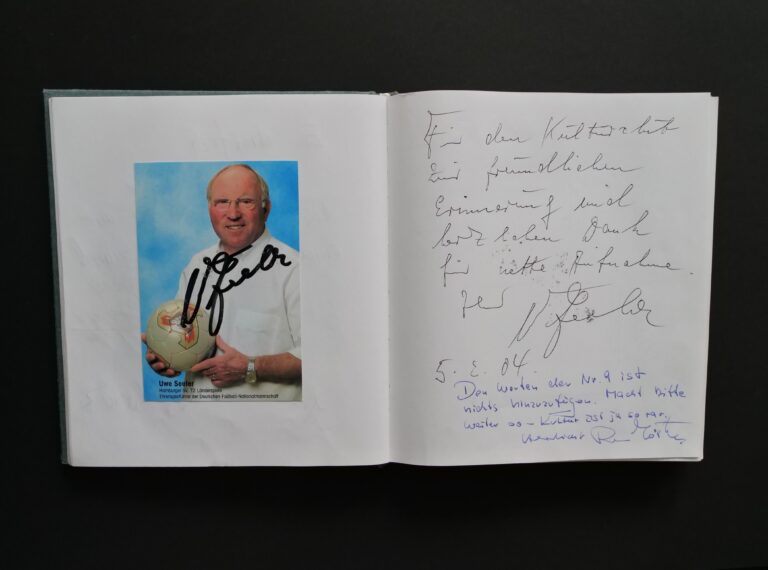 Uwe Seeler
Hamburger SV, 72 Länderspiele
Ehrenspielführer der Deutschen Fußball-Nationalmannschaft
Für den Kulturclub
zur freundlichen
Erinnerung und
herzlichen Dank
für nette Aufnahme.
Uwe Seeler
5. 04.
Den Worten der Nr. 9 ist
nichts hinzuzufügen. Macht bitte
weiter so - Kultur ist ja so rar.